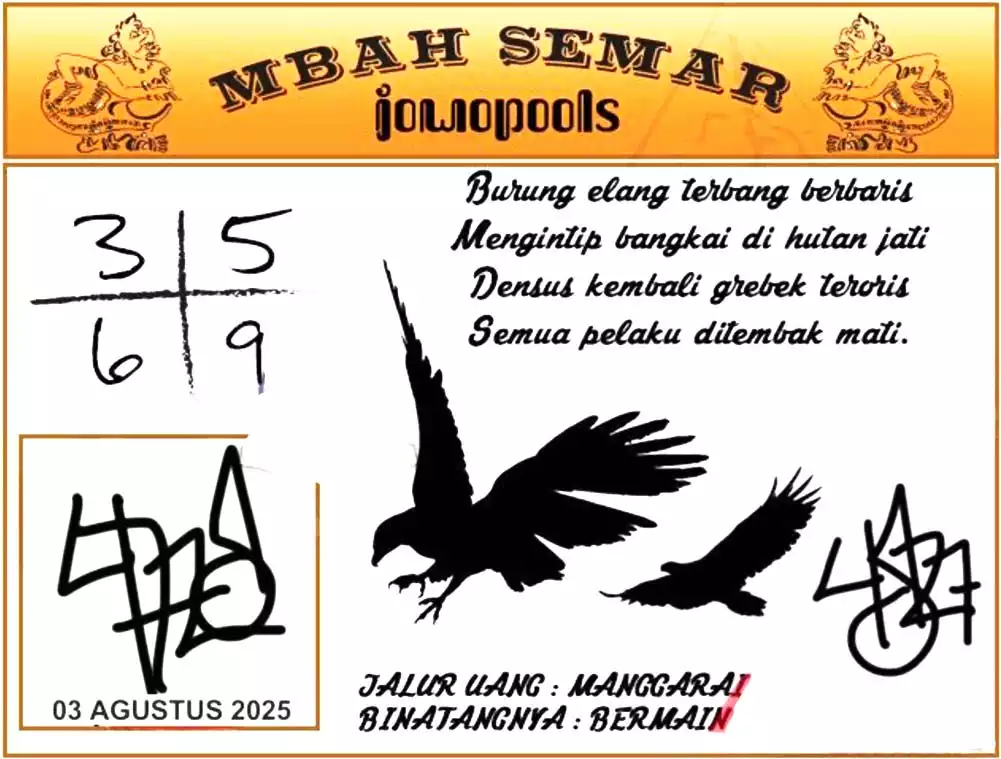 MBAH SEMAR
jowopools
Burung elang terbang berbaris
Mengintip bangkai di hutan jati
Densus kembali grebek teroris
Semua pelaku ditembak mati.
3 5
6 9
03 AGUSTUS 2025
JALUR UANG : MANGGARAI
BINATANGNYA : BERMAIN